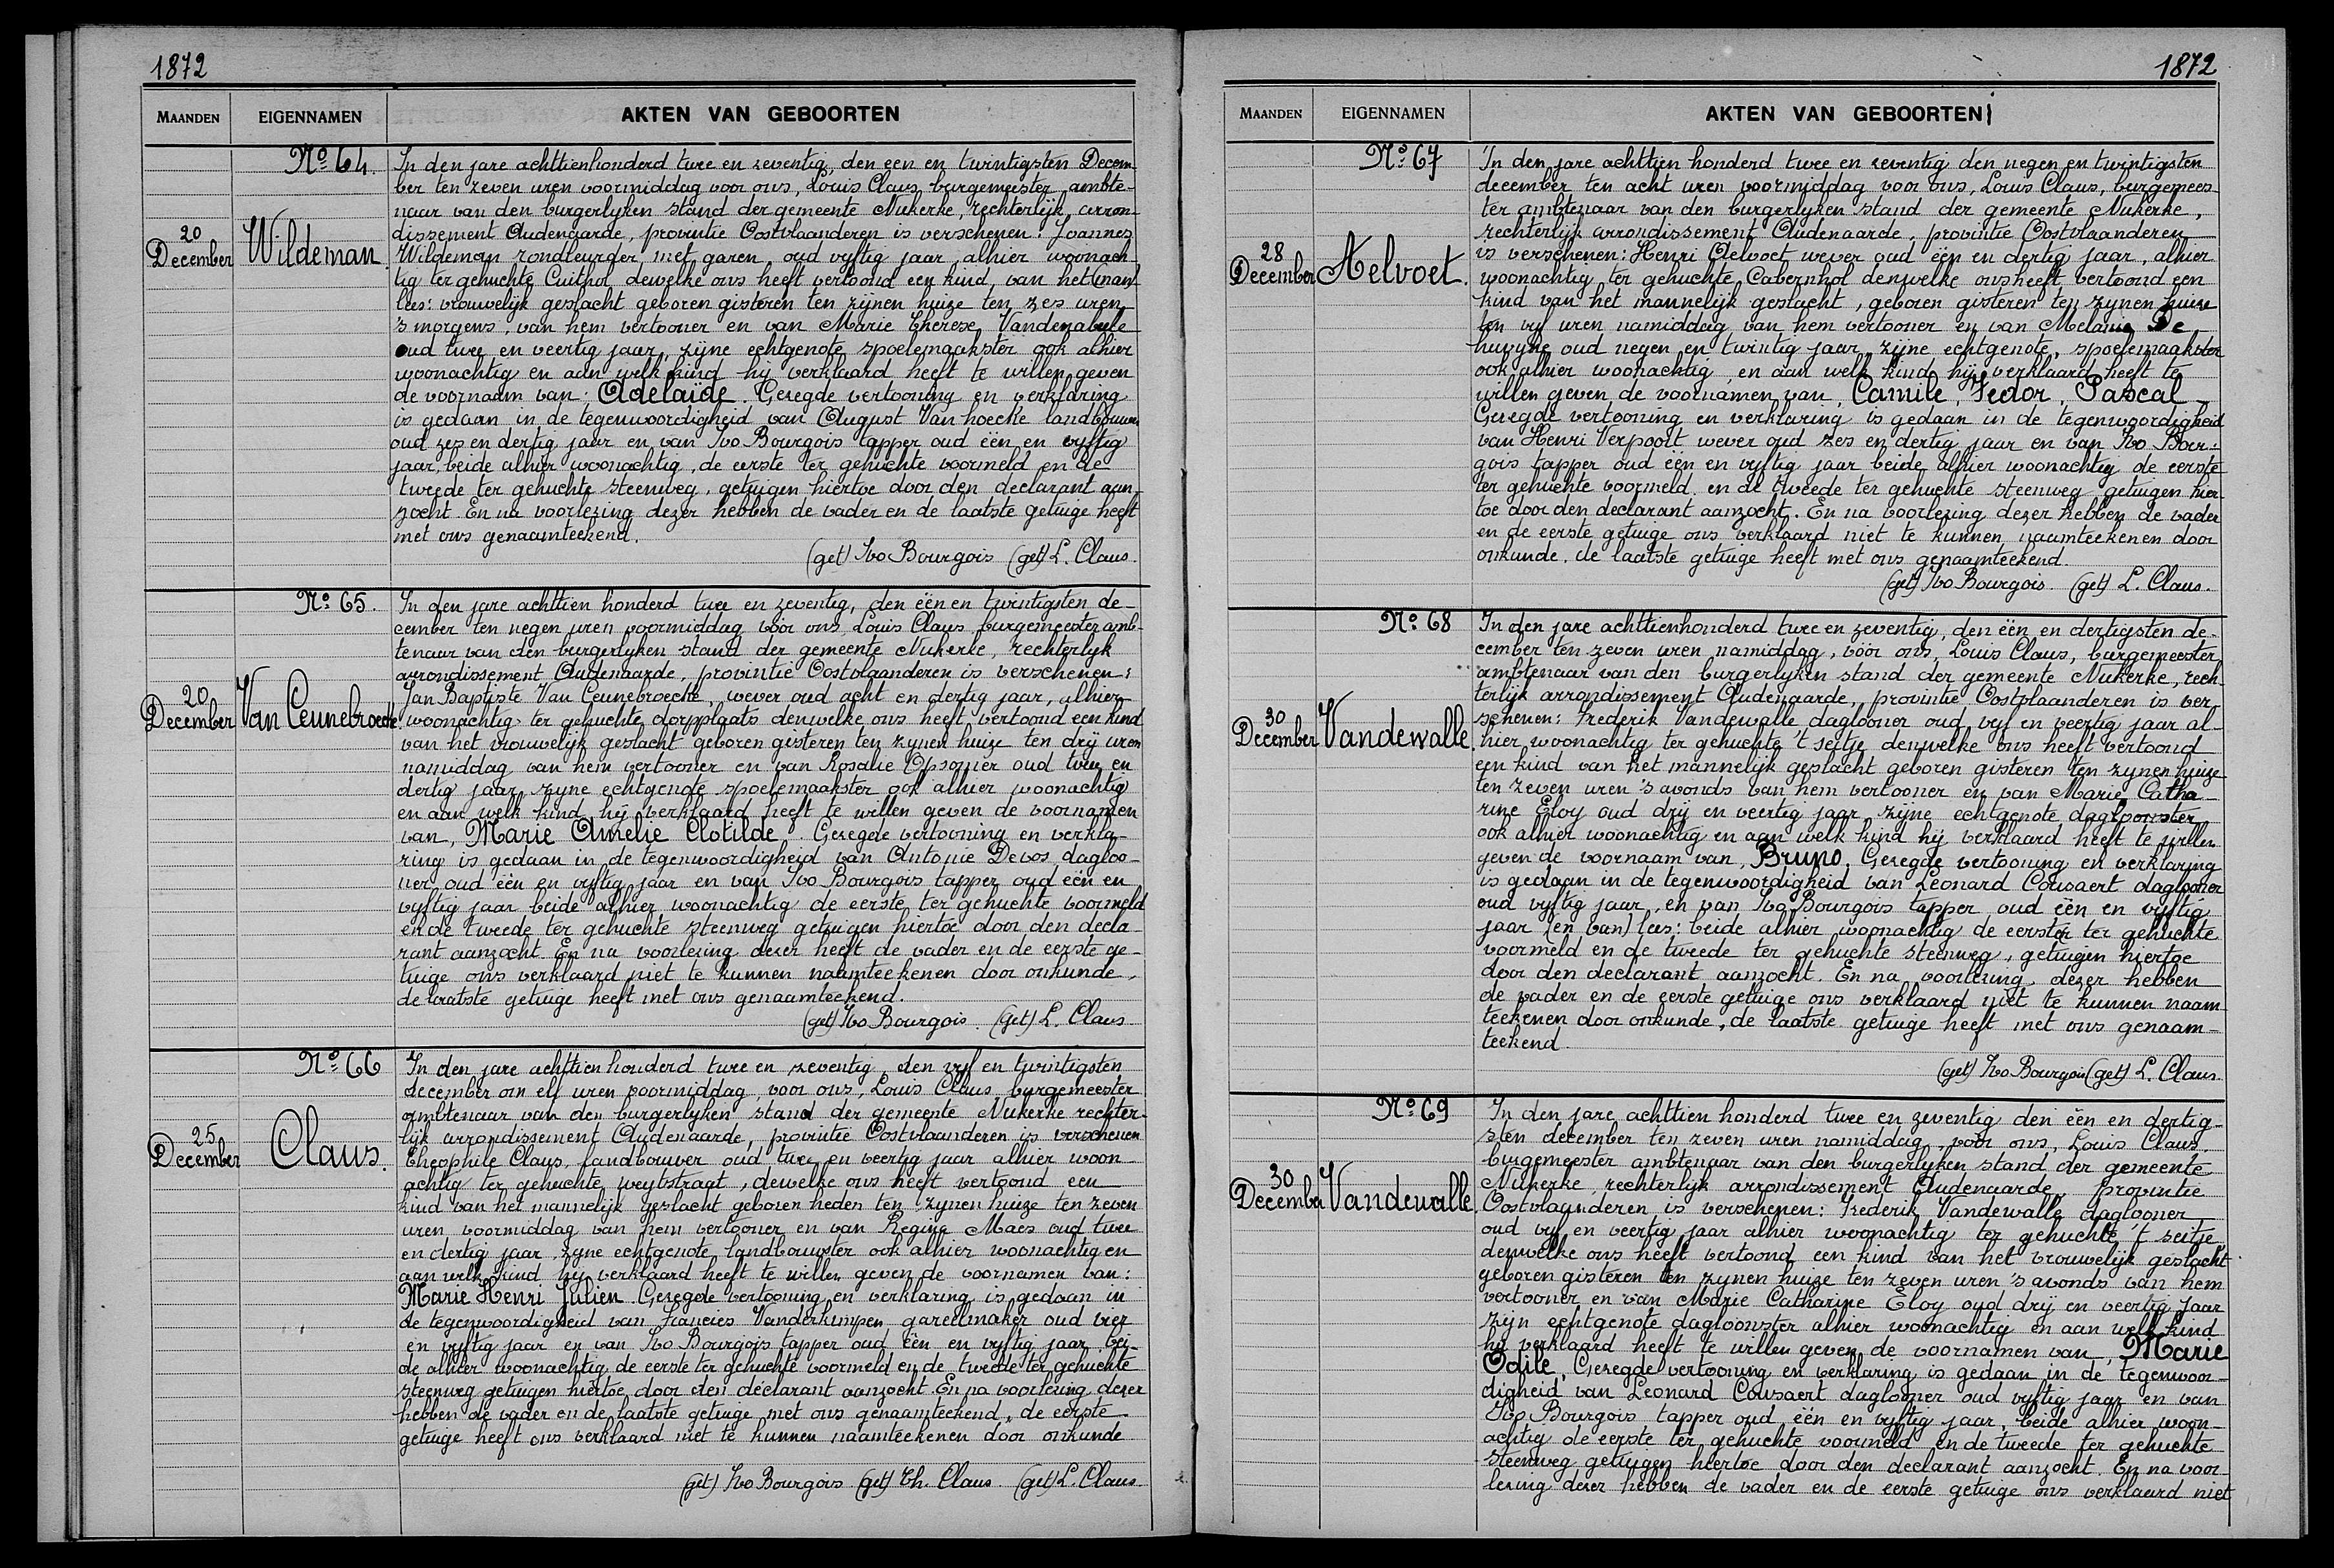 1872
MAANDEN EIGENNAMEN AKTEN VAN GEBOORTEN
No 64.
20
December
Wildeman.
In den jare achttienhonderd twee en zeventig, den een en twintigsten Decem-
ber ten zeven uren voormiddag voor ons, Louis Claus, burgemeester, ambte-
naar van den burgerlyken stand der gemeente Nukerke, rechterlijk arron-
dissement Audenaarde, provintie Oostvlaanderen is verschenen: Joannes
Wildeman rondleurder met garen, oud vyftig jaar, alhier woonach-
tig ter gehuchte Cuithol dewelke ons heeft vertoond een kind, van het (man)
lees: vrouwelyk geslacht geboren gisteren ten zynen huize ten zes uren
'smorgens, van hem vertooner en van Marie Therese Vandenabeele
oud twee en veertig jaar, zijne echtgenote spoelemaakster ook alhier
woonachtig en aan welk kind hij verklaard heeft te willen geven
de voornaam van: Adelaïde. Gezegde vertooning en verklaring
is gedaan in de tegenwoordigheid van August Van hoecke landbouwer
oud zes en dertig jaar en van Ivo Bourgois tapper oud één en vyftig
jaar, beide alhier woonachtig, de eerste ter gehuchte voormeld en de
tweede ter gehuchte steenweg, getuigen hiertoe door den declarant aan-
zocht. En na voorlezing dezer hebben de vader en de laatste getuige heeft
met ons genaamteekend.
(get) Ivo Bourgois (get) L. Claus.
No 65.
20
December
Van Ceunebroecke.
In den jare achttien honderd twee en zeventig, den één en twintigsten de-
cember ten negen uren voormiddag vóór ons, Louis Claus burgemeester amb-
tenaar van den burgerlyken stand der gemeente Nukerke, rechterlyk
arrondissement Audenaarde, provintie Oostvlaanderen is verschenen:
Jan Baptiste Van Ceunebroecke, wever oud acht en dertig jaar, alhier
woonachtig ter gehuchte dorpplaats denwelke ons heeft vertoond een kind
van het vrouwelyk geslacht geboren gisteren ten zynen huize ten drÿ uren
namiddag van hem vertooner en van Rosalie Opsomer oud twee en
dertig jaar zyne echtgenote spoelemaakster ook alhier woonachtig
en aan welk kind hij verklaard heeft te willen geven de voornamen
van, Marie Amelie Clotilde. Gezegde vertooning en verkla-
ring is gedaan in de tegenwoordigheid van Antonie Devos dagloo-
ner oud één en vyftig jaar en van Ivo Bourgois tapper oud één en
vyftig jaar beide alhier woonachtig de eerste ter gehuchte voormeld
en de tweede ter gehuchte steenweg getuigen hiertoe door den decla-
rant aanzocht. En na voorlezing dezer heeft de vader en de eerste ge-
tuige ons verklaard niet te kunnen naamteekenen door onkunde,
de laatste getuige heeft met ons genaamteekend.
(get) Ivo Bourgois. (get) L. Claus
No 66
25
December
Claus.
In den jare achttien honderd twee en zeventig, den vyf en twintigsten
december om elf uren voormiddag, voor ons, Louis Claus, burgemeester
ambtenaar van den burgerlyken stand der gemeente Nukerke rechter-
lijk arrondissement Audenaarde, provintie Oostvlaanderen is verschenen
Theophile Claus, landbouwer oud twee en veertig jaar alhier woon-
achtig ter gehuchte weytstraat, dewelke ons heeft vertoond een
kind van het mannelyk geslacht geboren heden ten zynen huize ten zeven
uren voormiddag van hem vertooner en van Regine Maes oud twee
en dertig jaar, zyne echtgenote landbouwster ook alhier woonachtig en
aan welk kind hij verklaard heeft te willen geven de voornamen van:
Marie Henri Julien Gezegde vertooning en verklaring is gedaan in
de tegenwoordigheid van Francies Vanderkimpen gareelmaker oud vier
en vyftig jaar en van Ivo Bourgois tapper oud één en vyftig jaar, bei-
de alhier woonachtig de eerste ter gehuchte voormeld en de tweede ter gehuchte
steenweg getuigen hiertoe door den declarant aanzocht. En na voorlezing dezer
hebben de vader en de laatste getuige met ons genaamteekend, de eerste
getuige heeft ons verklaard niet te kunnen naamteekenen door onkunde
(get) Ivo Bourgois (get) Th. Claus. (get) L. Claus.
1872
MAANDEN EIGENNAMEN AKTEN VAN GEBOORTEN
No 67
28
December
Aelvoet.
In den jare achttien honderd twee en zeventig den negen en twintigsten
december ten acht uren voormiddag voor ons, Louis Claus, burgemees-
ter ambtenaar van den burgerlyken stand der gemeente Nukerke,
rechterlijk arrondissement Audenaarde, provintie Oostvlaanderen
is verschenen: Henri Aelvoet wever oud één en dertig jaar, alhier
woonachtig ter gehuchte Cabernhol denwelke ons heeft vertoond een
kind van het mannelijk geslacht, geboren gisteren ten zynen huize
ten vyf uren namiddag van hem vertooner en van Melanie De
huvyne oud negen en twintig jaar zijne echtgenote, spoelemaakster
ook alhier woonachtig, en aan welk kind hij verklaard heeft te
willen geven de voornamen van, Camile, Fedor, Pascal
Gezegde vertooning en verklaring is gedaan in de tegenwoordigheid
van Henri Verpoort wever oud zes en dertig jaar en van Ivo Bour-
gois tapper oud één en vyftig jaar beide alhier woonachtig de eerste
ter gehuchte voormeld en de tweede ter gehuchte steenweg getuigen hier-
toe door den declarant aanzocht. En na voorlezing dezer hebben de vader
en de eerste getuige ons verklaard niet te kunnen naamteekenen door
onkunde, de laatste getuige heeft met ons genaamteekend.
(get) Ivo Bourgois. (get) L. Claus.
No 68
30
December
Vandewalle.
In den jare achttienhonderd twee en zeventig, den één en dertigsten de-
cember ten zeven uren namiddag, vóór ons, Louis Claus, burgemeester
ambtenaar van den burgerlyken stand der gemeente Nukerke, rech-
terlijk arrondissement Audenaarde, provintie Oostvlaanderen is ver-
schenen: Frederik Vandewalle daglooner oud vyf en veertig jaar al-
hier woonachtig ter gehuchte 't seitje denwelke ons heeft vertoond
een kind van het mannelijk geslacht geboren gisteren ten zynen huize
ten zeven uren 's avonds van hem vertooner en van Marie Catha-
rine Eloy oud drij en veertig jaar zijne echtgenote dagloonster
ook alhier woonachtig en aan welk kind hij verklaard heeft te willen
geven de voornaam van, Bruno, Gezegde vertooning en verklaring
is gedaan in de tegenwoordigheid van Leonard Cousaert daglooner
oud vyftig jaar, en van Ivo Bourgois tapper oud één en vyftig
jaar (en van) lees: beide alhier woonachtig de eersten ter gehuchte
voormeld en de tweede ter gehuchte steenweg, getuigen hiertoe
door den declarant aanzocht. En na voorlezing dezer hebben
de vader en de eerste getuige ons verklaard niet te kunnen naam-
teekenen door onkunde, de laatste getuige heeft met ons genaam-
teekend.
(get) Ivo Bourgois (get) L. Claus.
No 69
30
December
Vandewalle.
In den jare achttien honderd twee en zeventig den één en dertig-
sten december ten zeven uren namiddag, voor ons, Louis Claus,
burgemeester ambtenaar van den burgerlyken stand der gemeente
Nukerke, rechterlijk arrondissement Audenaarde, provintie
Oostvlaanderen is verschenen: Frederik Vandewalle daglooner
oud vyf en veertig jaar alhier woonachtig ter gehuchte 't seitje
denwelke ons heeft vertoond een kind van het vrouwelijk geslacht
geboren gisteren ten zynen huize ten zeven uren 's avonds van hem
vertooner en van Marie Catharine Eloy oud drij en veertig jaar
zijn echtgenote dagloonster alhier woonachtig en aan welk kind
hij verklaard heeft te willen geven de voornamen van, Marie
Odile, Gezegde vertooning en verklaring is gedaan in de tegenwoor-
digheid van Leonard Cousaert daglooner oud vyftig jaar en van
Ivo Bourgois tapper oud één en vyftig jaar, beide alhier woon-
achtig de eerste ter gehuchte voormeld en de tweede ter gehuchte
steenweg getuigen hiertoe door den declarant aanzocht. En na voor-
lezing dezer hebben de vader en de eerste getuige ons verklaard niet